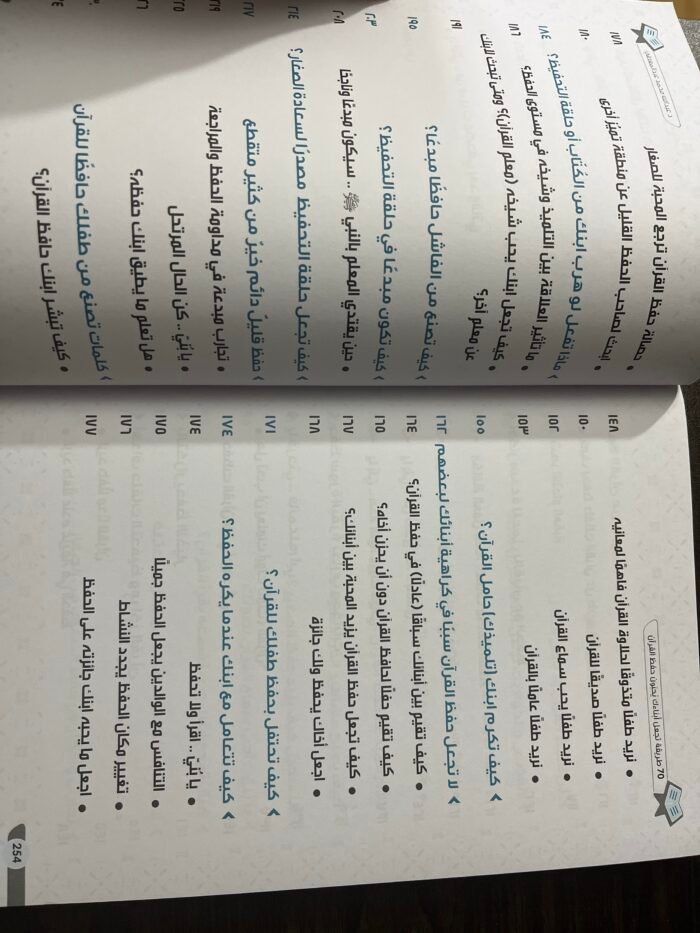 70 طريقة تجعل أبناءك يحبون حفظ القرآن
• نريد طفلًا متذوقًا لحلاوة القرآن فاهمًا لمعانيه ١٤٨
• نريد طفلًا صديقًا للقرآن ١٥٠
• نريد طفلًا يحب سماع القرآن ١٥٢
• نريد طفلًا عاملًا بالقرآن ١٥٣
› كيف تكرم ابنك (تلميذك) حامل القرآن؟ ١٥٥
› لا تجعل حفظ القرآن سببًا في كراهية أبنائك لبعضهم ١٦٢
• كيف تقيم بين أبنائك سباقًا (عادلًا) في حفظ القرآن؟ ١٦٤
• كيف تقيم حفلًا لحافظ القرآن دون أن يحزن أخاه؟ ١٦٥
• كيف تجعل حفظ القرآن يزيد المحبة بين أبنائك؟ ١٦٧
• اجعل أخاك يحفظ ولك جائزة ١٦٨
› كيف تحتفل بحفظ طفلك للقرآن؟ ١٧١
› كيف تتعامل مع ابنك عندما يكره الحفظ؟ ١٧٤
• يا بُنَيّ .. اقرأ ولا تحفظ ١٧٤
• التنافس مع الوالدين يجعل الحفظ جميلًا ١٧٥
• تغيير مكان الحفظ يجدد النشاط ١٧٦
• اجعل ما يحبه ابنك جائزته على الحفظ ١٧٧
254
• حصالة حفظ القرآن ترجع المحبة للصغار ١٧٨
• ابحث لصاحب الحفظ القليل عن منطقة تميز أخرى ١٨٠
› ماذا تفعل لو هرب ابنك من الكُتاب أو حلقة التحفيظ؟ ١٨٤
• ما تأثير العلاقة بين التلميذ وشيخه في مستوى الحفظ؟ ١٨٦
• كيف تجعل ابنك يحب شيخه (معلم القرآن)؟ ومتى تبحث لابنك
عن معلم آخر؟ ١٩١
› كيف تصنع من الفاشل حافظًا مبدعًا؟ ١٩٥
› كيف تكون مبدعًا في حلقة التحفيظ؟ ٢٠٣
• حين يقتدي المعلم بالنبي ﷺ .. سيكون مبدعًا وناجحًا ٢٠٨
› كيف تجعل حلقة التحفيظ مصدرًا لسعادة الصغار؟ ٢١٤
› حفظ قليلٌ دائم خيرٌ من كثير منقطع ٢١٧
• تجارب مبدعة في مداومة الحفظ والمراجعة ٢١٩
• يا بُنَيّ .. كن الحال المرتحل ٢٢٥
• هل تعلم ما يطيق ابنك حفظه؟
› كلمات تصنع من طفلك حافظًا للقرآن
• كيف تبشر ابنك حافظ القرآن؟